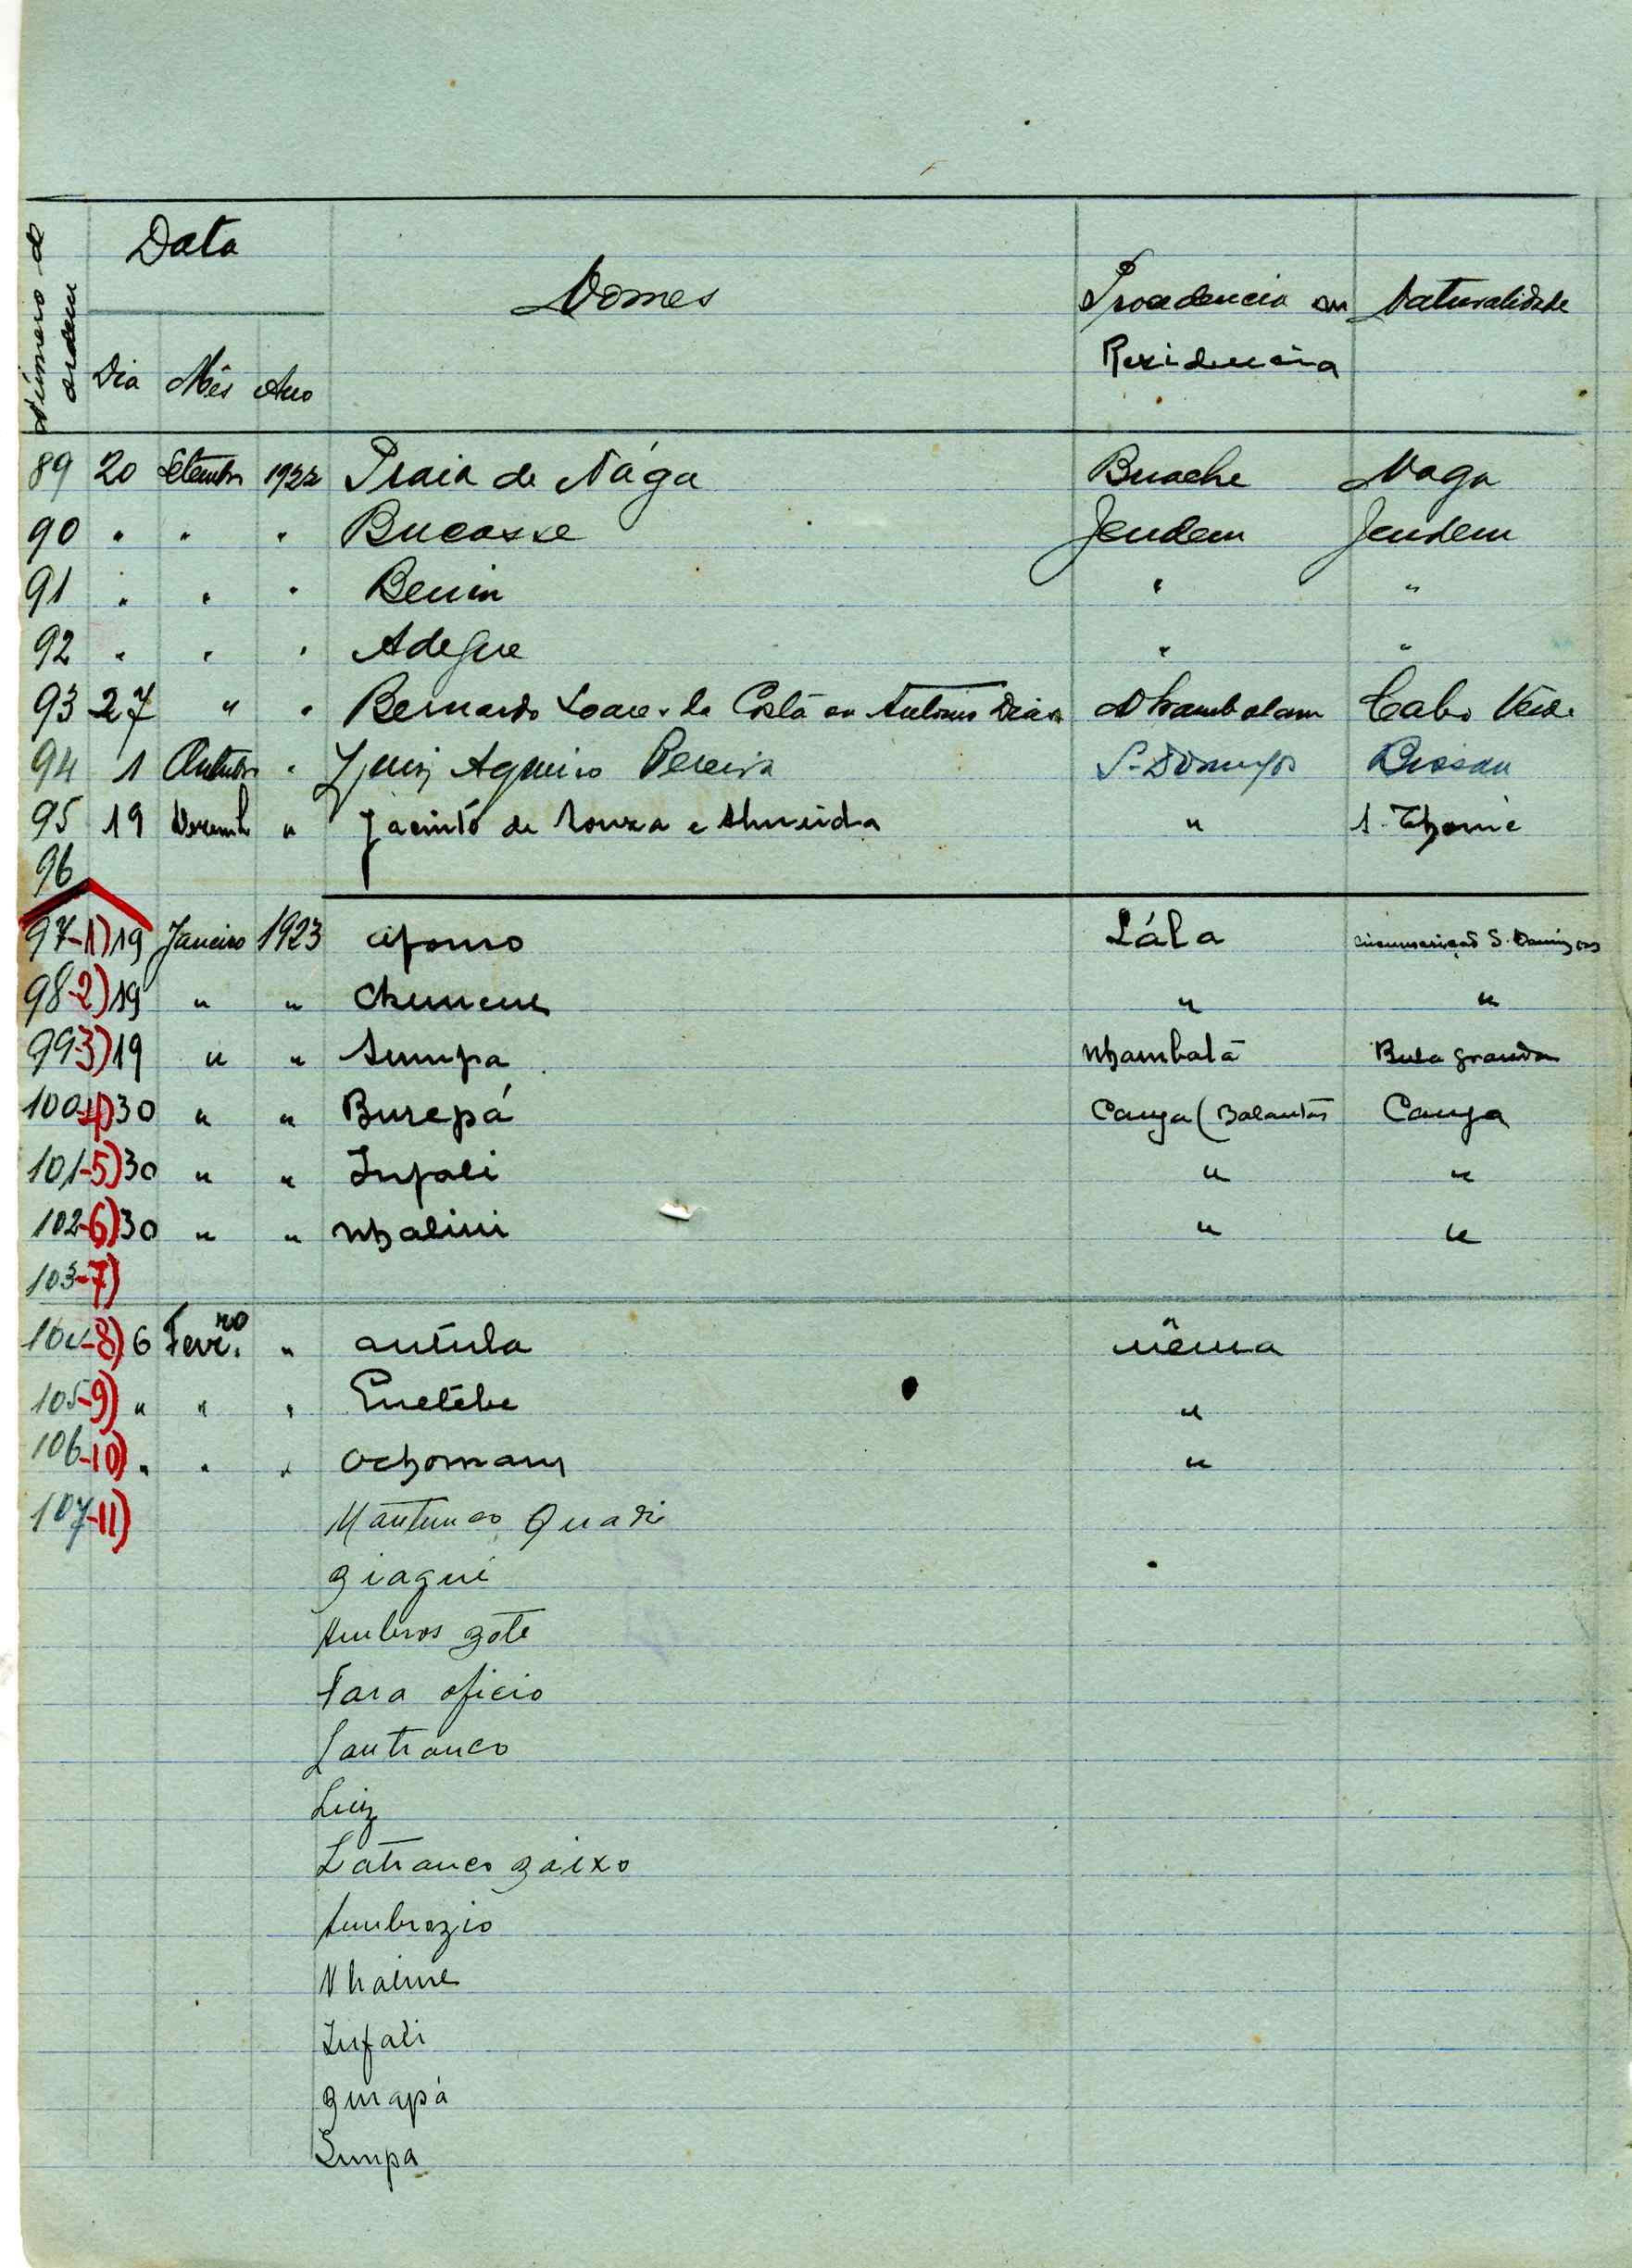 Número de ordem
Data
Dia Mês Ano
Nomes
Procedencia ou Residencia
Naturalidade
89 20 Setembro 1922 Praia de Nága Buache Naga
90 " " " Bucasse Jendem Jendem
91 " " " Benin " "
92 " " " Adegue " "
93 27 " " Bernardo Soares da Costa ou Antonio Dias Nhambalam Cabo Verde
94 1 Outubro " Luiz Aguino Pereira S. Domingos Bissau
95 19 Dezembro " Jacinto de Souza e Almeida " S. Thomé
96
97-1) 19 Janeiro 1923 Afonso Lála circunscrição S. Domingos
98-2) 19 " " " "
99-3) 19 " " Sumpa Nhambalã Bula grande
100-4) 30 " " Burepá Canja (Balantas Canja
101-5) 30 " " Infali " "
102-6) 30 " " Nhalini " "
103-7)
104-8) 6 Fevro. " antula nêma
105-9) " " " "
106-10) " " " Ochomany "
107-11) Mantunco Quadi
Giagui
Ambros zote
Fara oficio
Lantranco
Luiz
Latranco zaixo
Ambrozio
Nhaime
Infali
Gurapá
Sumpa